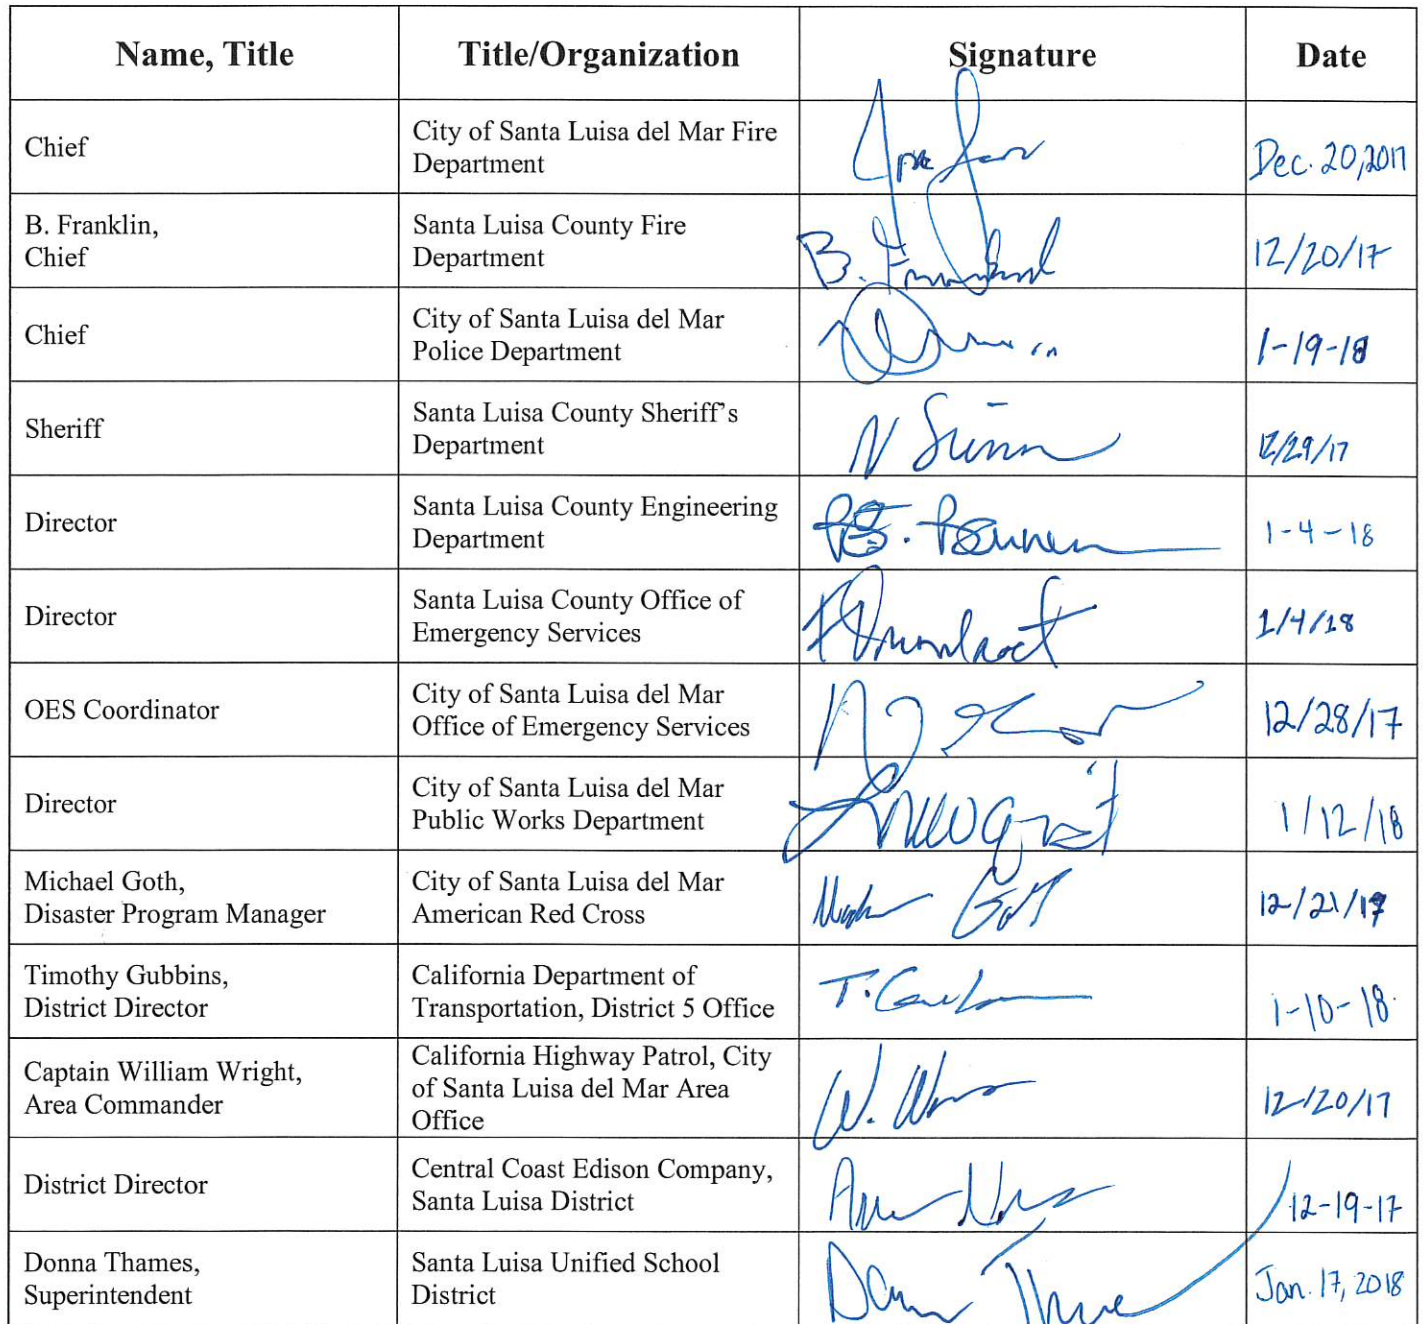 Name, Title Title/Organization Signature Date
Chief
City of Santa Luisa del Mar Fire
Department
Dec. 20, 2017
B. Franklin,
Chief
Santa Luisa County Fire
Department
B. Franklin
12/20/17
Chief
City of Santa Luisa del Mar
Police Department
1-19-18
Sheriff
Santa Luisa County Sheriff's
Department
N
12/29/17
Director
Santa Luisa County Engineering
Department
1-4-18
Director
Santa Luisa County Office of
Emergency Services
1/4/18
OES Coordinator
City of Santa Luisa del Mar
Office of Emergency Services
12/28/17
Director
City of Santa Luisa del Mar
Public Works Department
1/12/18
Michael Goth,
Disaster Program Manager
City of Santa Luisa del Mar
American Red Cross
12/21/17
Timothy Gubbins,
District Director
California Department of
Transportation, District 5 Office
T.
1-10-18
Captain William Wright,
Area Commander
California Highway Patrol, City
of Santa Luisa del Mar Area
Office
W.
12/20/17
District Director
Central Coast Edison Company,
Santa Luisa District
12-19-17
Donna Thames,
Superintendent
Santa Luisa Unified School
District
Jan. 17, 2018